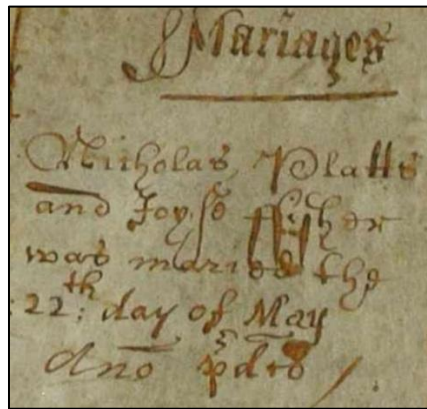 Mariages
Nicholas Platts
and Joyse ffisher
was maried the
:22th: day of May
Ano pdto /